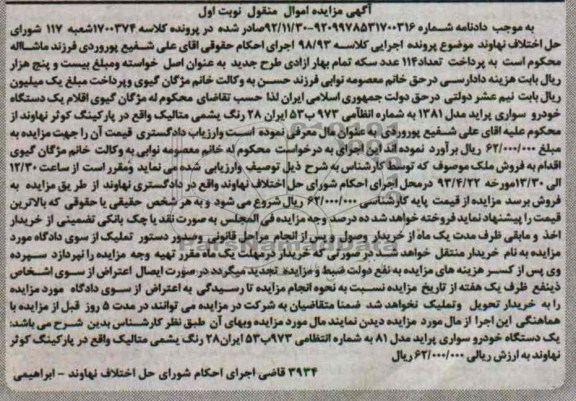 آگهی مزایده اموال منقول نوبت اول
به موجب دادنامه شماره ۹۲۰۹۹۷۸۵۳۱۷۰۰۳۱۶-۹۲/۱۱/۳۰صادر شده در پرونده کلاسه ۱۷۰۰۳۷۴شعبه ۱۱۷ شورای
حل اختلاف نهاوند موضوع پرونده اجرایی کلاسه ۹۸/۹۳ اجرای احکام حقوقی اقای علی شفیع پوروردی فرزند ماشااله
محکوم است به پرداخت تعداد۱۱۴ عدد سکه تمام بهار ازادی طرح جدید به عنوان اصل خواسته ومبلغ بیست و پنج هزار
ریال بابت هزینه دادارسی درحق خانم معصومه نوابی فرزند حسن به وکالت خانم مژگان گیوی وپرداخت مبلغ یک میلیون
ریال بابت نیم عشر دولتی درحق دولت جمهوری اسلامی ایران لذا حسب تقاضای محکوم له مژگان گیوی اقلام یک دستگاه
خودرو سواری پراید مدل ۱۳۸۱ به شماره انتظامی ۹۷۳ ب۵۳ ایران ۲۸ رنگ یشمی متالیک واقع در پارکینگ کوثر نهاوند از
محکوم علیه اقای علی شفیع پوروردی به عنوان مال معرفی نموده است وارزیاب دادگستری قیمت آن را جهت مزایده به
مبلغ ۶۲/۰۰۰/۰۰۰ ریال برآورد نموده اند این اجرای به درخواست محکوم له خانم معصومه نوابی به وکالت خانم مژگان گیوی
اقدام به فروش ملک موصوف که توسط کارشناس به شرح ذیل توصیف وارزیابی شده می نماید ومقرر است از ساعت ۱۲/۳۰
الی ۱۳/۳۰مورخه ۹۳/۴/۲۲ درمحل اجرای احکام شورای حل اختلاف نهاوند واقع در دادگستری نهاوند از طریق مزایده به
فروش برسد مزایده از قیمت پایه کارشناسی ۶۲/۰۰۰/۰۰۰ ریال شروع می شود و به هر شخص حقیقی یا حقوقی که بالاترین
قیمت را پیشنهاد نماید فروخته خواهد شد ده درصد وجه مزایده فی المجلس به صورت نقد یا چک بانکی تضمینی از خریدار
اخذ و مابقی ظرف مدت یک ماه از خریدار وصول و پس از انجام مراحل قانونی و صدور دستور تملیک از سوی دادگاه مورد
مزایده به نام خریدار منتقل خواهد شد. در صورتی که خریدار درمهلت یک ماه مقرر تهیه وجه مزایده را نپردازد سپرده
وی پس از کسر هزینه های مزایده به نفع دولت ضبط و مزایده تجدید میگردد در صورت ایصال اعتراض از سوی اشخاص
ذینفع ظرف یک هفته از تاریخ مزایده نسبت به نحوه انجام مزایده تا رسیدگی به اعتراض از سوی دادگاه مورد مزایده
را به خریدار تحویل وتملیک نخواهد شد ضمنا متقاضیان به شرکت در مزایده می توانند در مدت ۵ روز قبل از مزایده با
هماهنگی این اجرا از مال مورد مزایده دیدن نمایند مال مورد مزایده وبهای آن طبق نظر کارشناس بدین شرح می باشد:
یک دستگاه خودرو سواری پراید مدل ۸۱ به شماره انتظامی ۹۷۳ب۵۳ ایران۲۸ رنگ یشمی متالیک واقع در پارکینگ کوثر
نهاوند به ارزش ریالی ۶۲/۰۰۰/۰۰۰ ریال
۳۹۳۴ قاضی اجرای احکام شورای حل اختلاف نهاوند - ابراهیمی